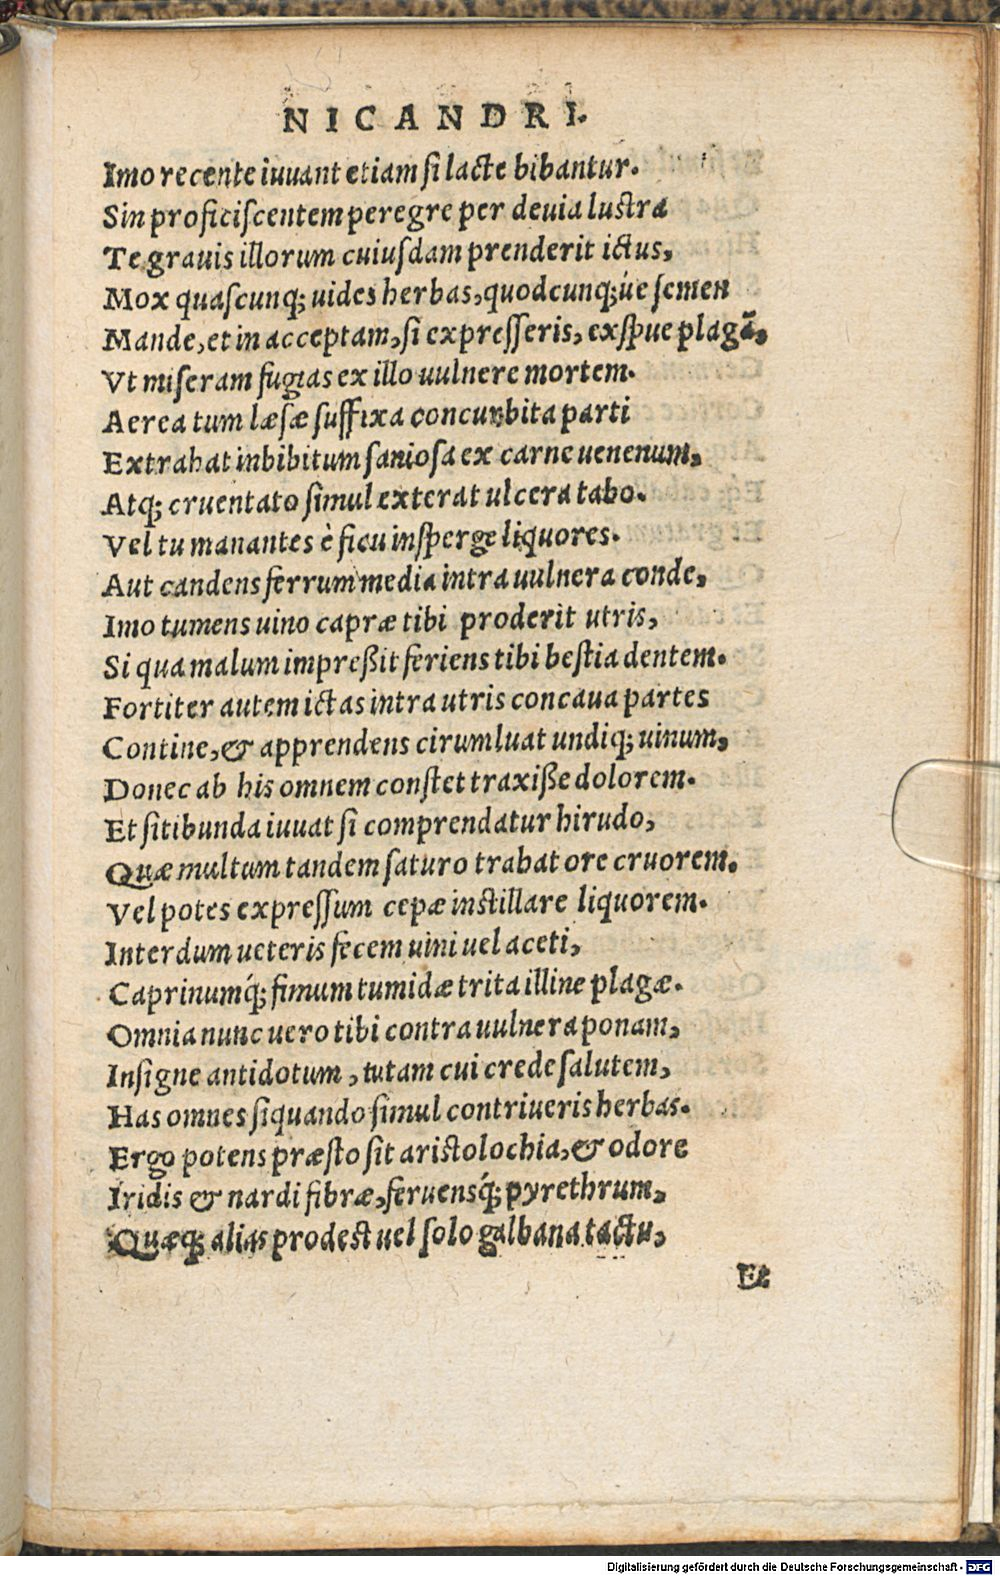 NICANDRI.
Imo recente iuuant etiam si lacte bibantur.
Sin proficiscentem peregre per deuia lustra
Te grauis illorum cuiusdam prenderit ictus,
Mox quascunq; uides herbas, quodcunq; úe semen
Mande, et in acceptam, si expresseris, exspue plagā,
Vt miseram fugias ex illo uulnere mortem.
Aerea tum læsæ suffixa concurbita parti
Extrahat inbibitum saniosa ex carne uenenum,
Atq; cruentato simul exterat ulcera tabo.
Vel tu manantes è ficu insperge liquores.
Aut candens ferrum media intra uulnera conde,
Imo tumens uino capræ tibi proderit utris,
Si qua malum impreßit feriens tibi bestia dentem.
Fortiter autem ictas intra utris concaua partes
Contine, & apprendens cirumluat undiq; uinum,
Donec ab his omnem constet traxiße dolorem.
Et sitibunda iuuat si comprendatur hirudo,
Quæ multum tandem saturo trahat ore cruorem.
Vel potes expressum cepæ instillare liquorem.
Interdum ueteris fecem uini uel aceti,
Caprinumq́; fimum tumidæ trita illine plagæ.
Omnia nunc uero tibi contra uulnera ponam,
Insigne antidotum, tutam cui crede salutem,
Has omnes siquando simul contriueris herbas.
Ergo potens præsto sit aristolochia, & odore
Iridis & nardi fibræ, feruensq́; pyrethrum,
Quæq; alias prodest uel solo galbana tactu,
Et
Digitalisierung gefördert durch die Deutsche Forschungsgemeinschaft - DFG